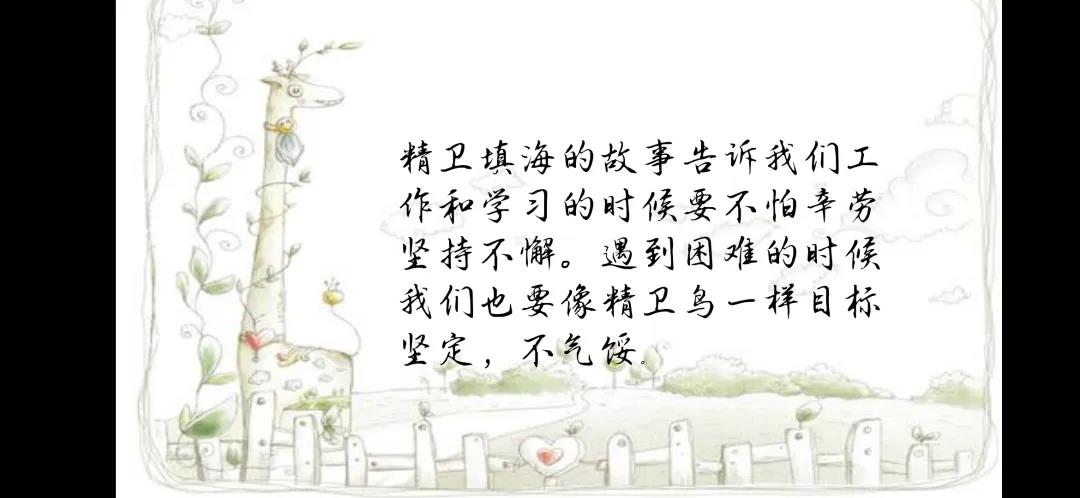 精卫填海的故事告诉我们工
作和学习的时候要不怕辛劳
坚持不懈。遇到困难的时候
我们也要像精卫鸟一样目标
坚定，不气馁。